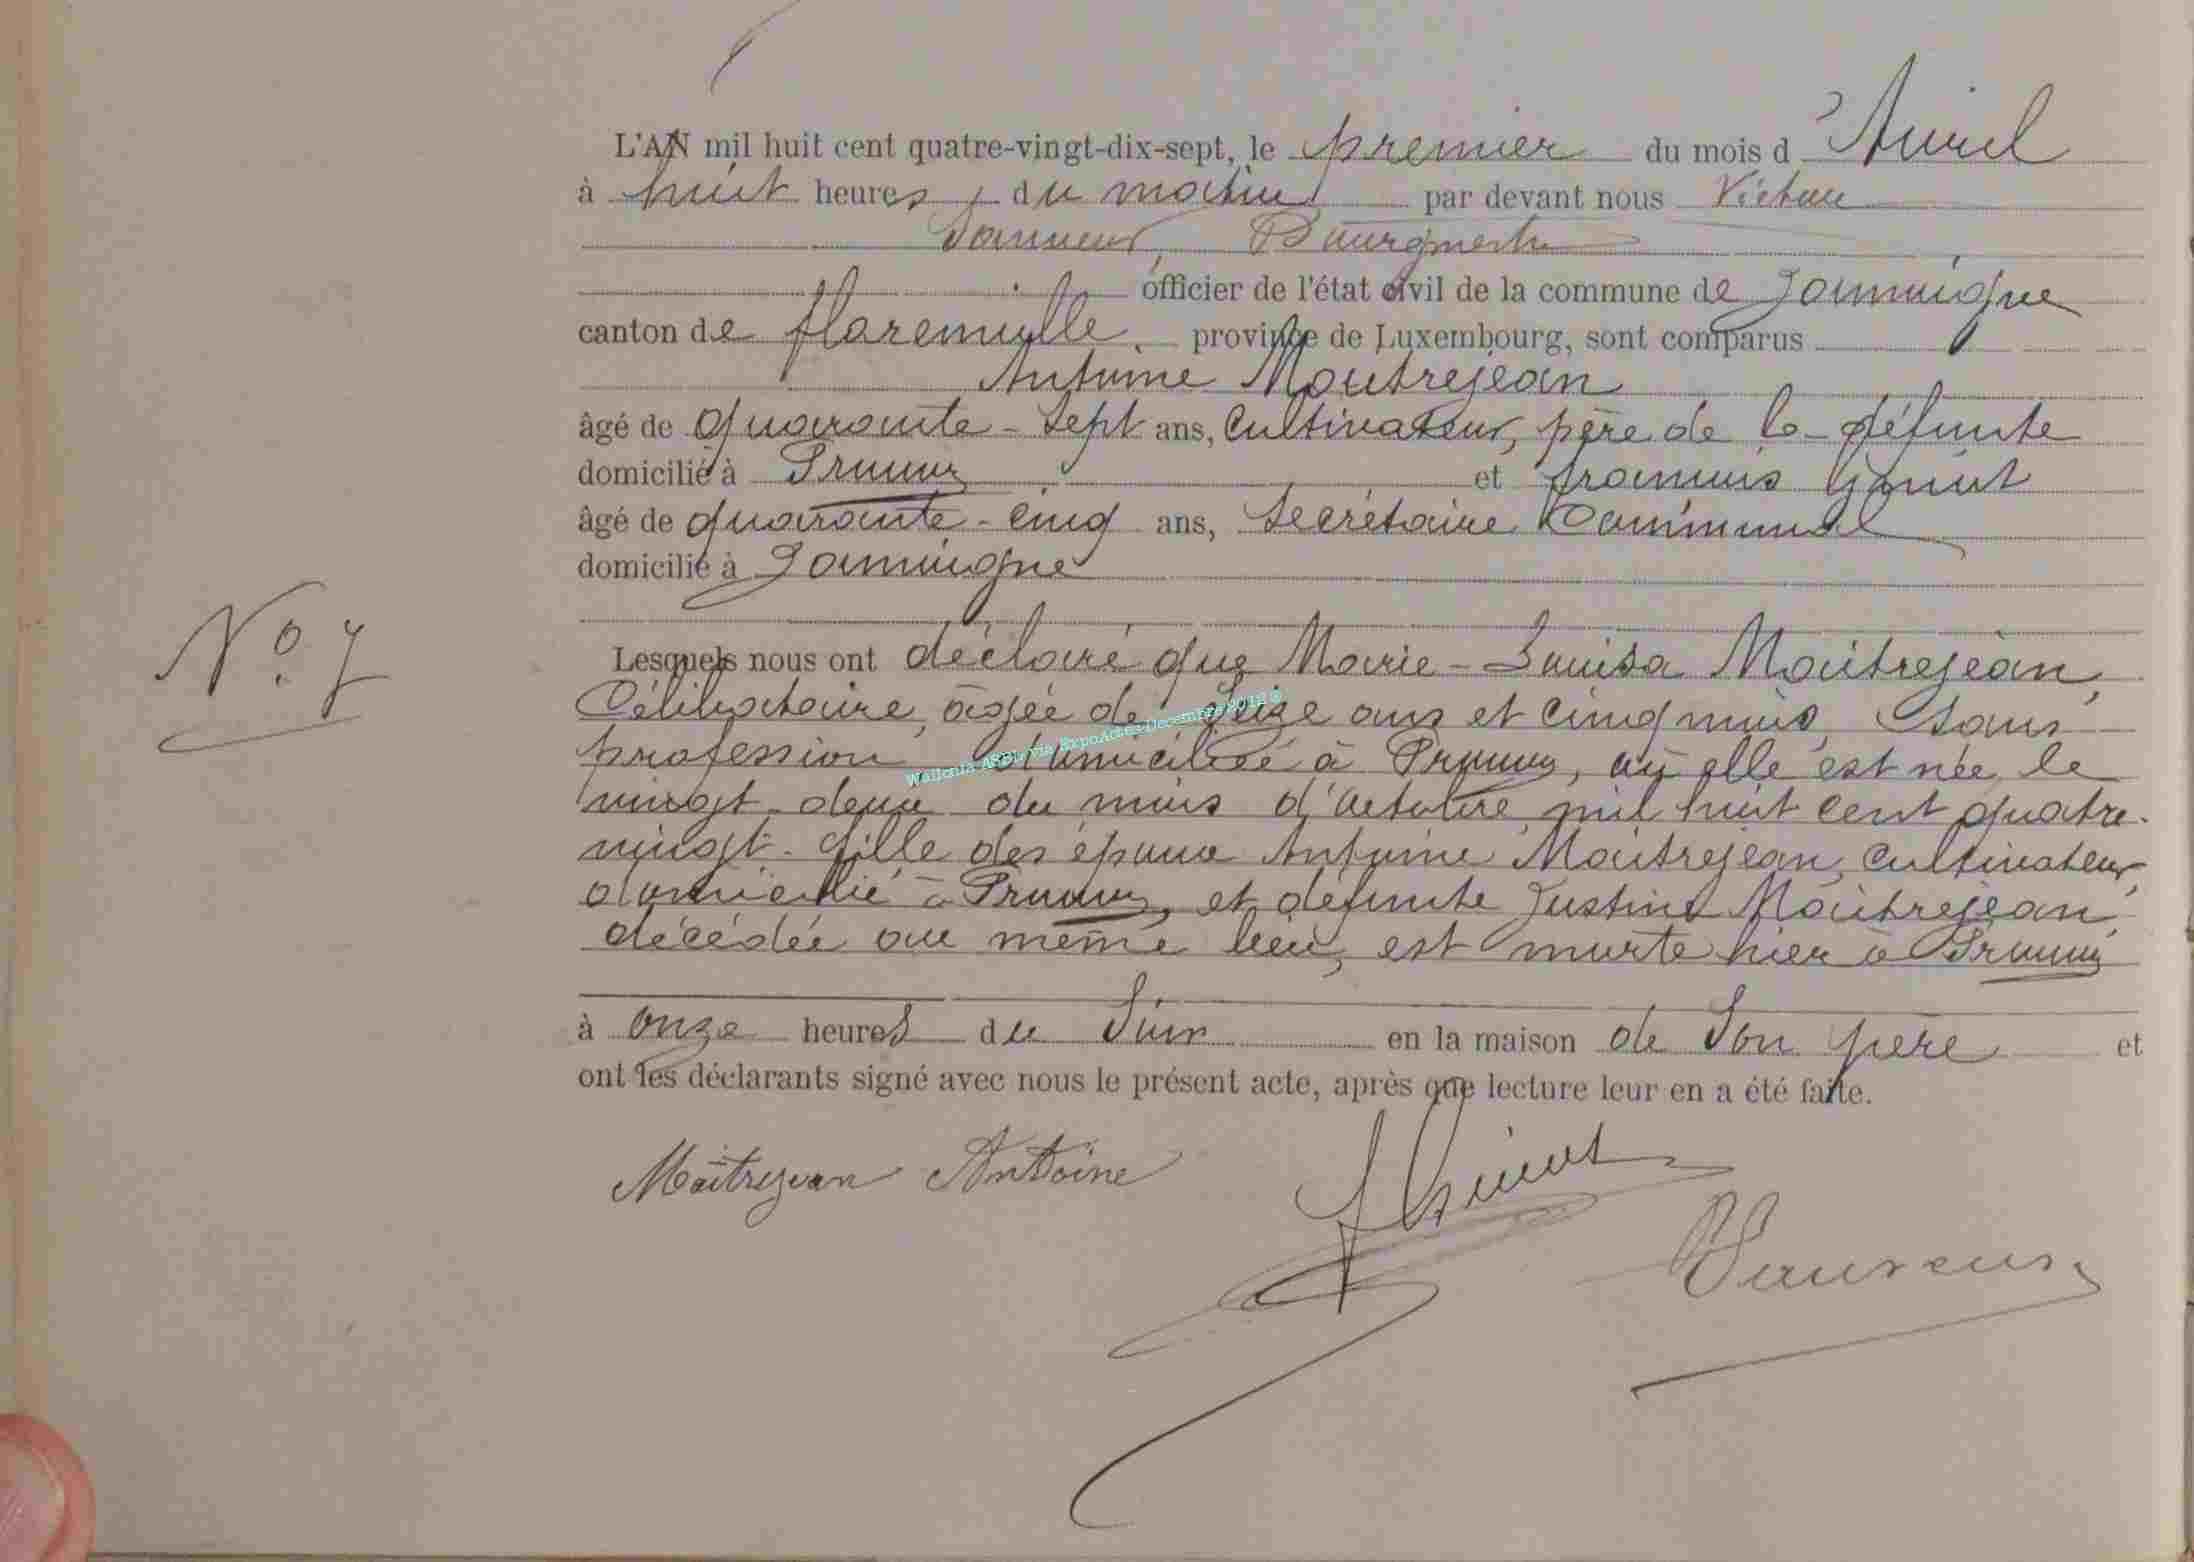 L'AN mil huit cent quatre-vingt-dix-sept, le premier du mois d'Avril
à huit heures du matin par devant nous Victor
Bourgmestre
officier de l'état civil de la commune de Jamoigne
canton de florenville, province de Luxembourg, sont comparus
Antoine Maitrejean
âgé de quarante-sept ans, Cultivateur, père de la défunte
domicilié à Prouvy et françois
âgé de quarante-cinq ans, Secrétaire Communal
domicilié à Jamoigne
N° 7
Lesquels nous ont déclaré que Marie-Louisa Maitrejean,
Célibataire, âgée de seize ans et cinq mois, sans
profession domiciliée à Prouvy, où elle est née le
vingt-deux du mois d'octobre mil huit cent quatre-
vingt. fille des époux Antoine Maitrejean, Cultivateur,
domicilié à Prouvy, et défunte Justine Maitrejean,
décédée au même lieu, est morte hier à Prouvy
à onze heures du Soir en la maison de Son père et
ont les déclarants signé avec nous le présent acte, après que lecture leur en a été faite.
Maîtrejean Antoine
Wallonia ASBL via ExpoActes-Decembre 2012 ©